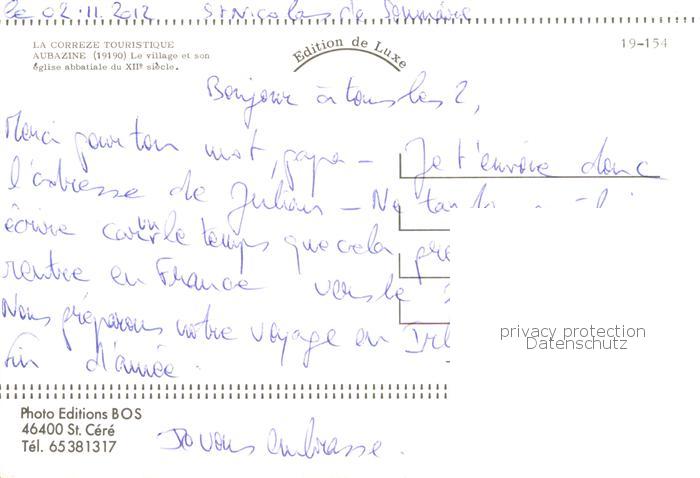 le 02.11.2012 St Nicolas de Sommaire
LA CORREZE TOURISTIQUE
AUBAZINE (19190) Le village et son
église abbatiale du XIIᵉ siècle.
Edition de Luxe
19-154
Bonjour à tous les 2,
Merci pour ton mot, papa - Je t'envoie donc
l'adresse de Julian - Ne
écrire car vu le temps que cela
rentre en France vers le
Nous préparons notre voyage en
fin d'année.
privacy protection
Datenschutz
Photo Editions BOS
46400 St. Céré
Tél. 65381317
Je vous embrasse.